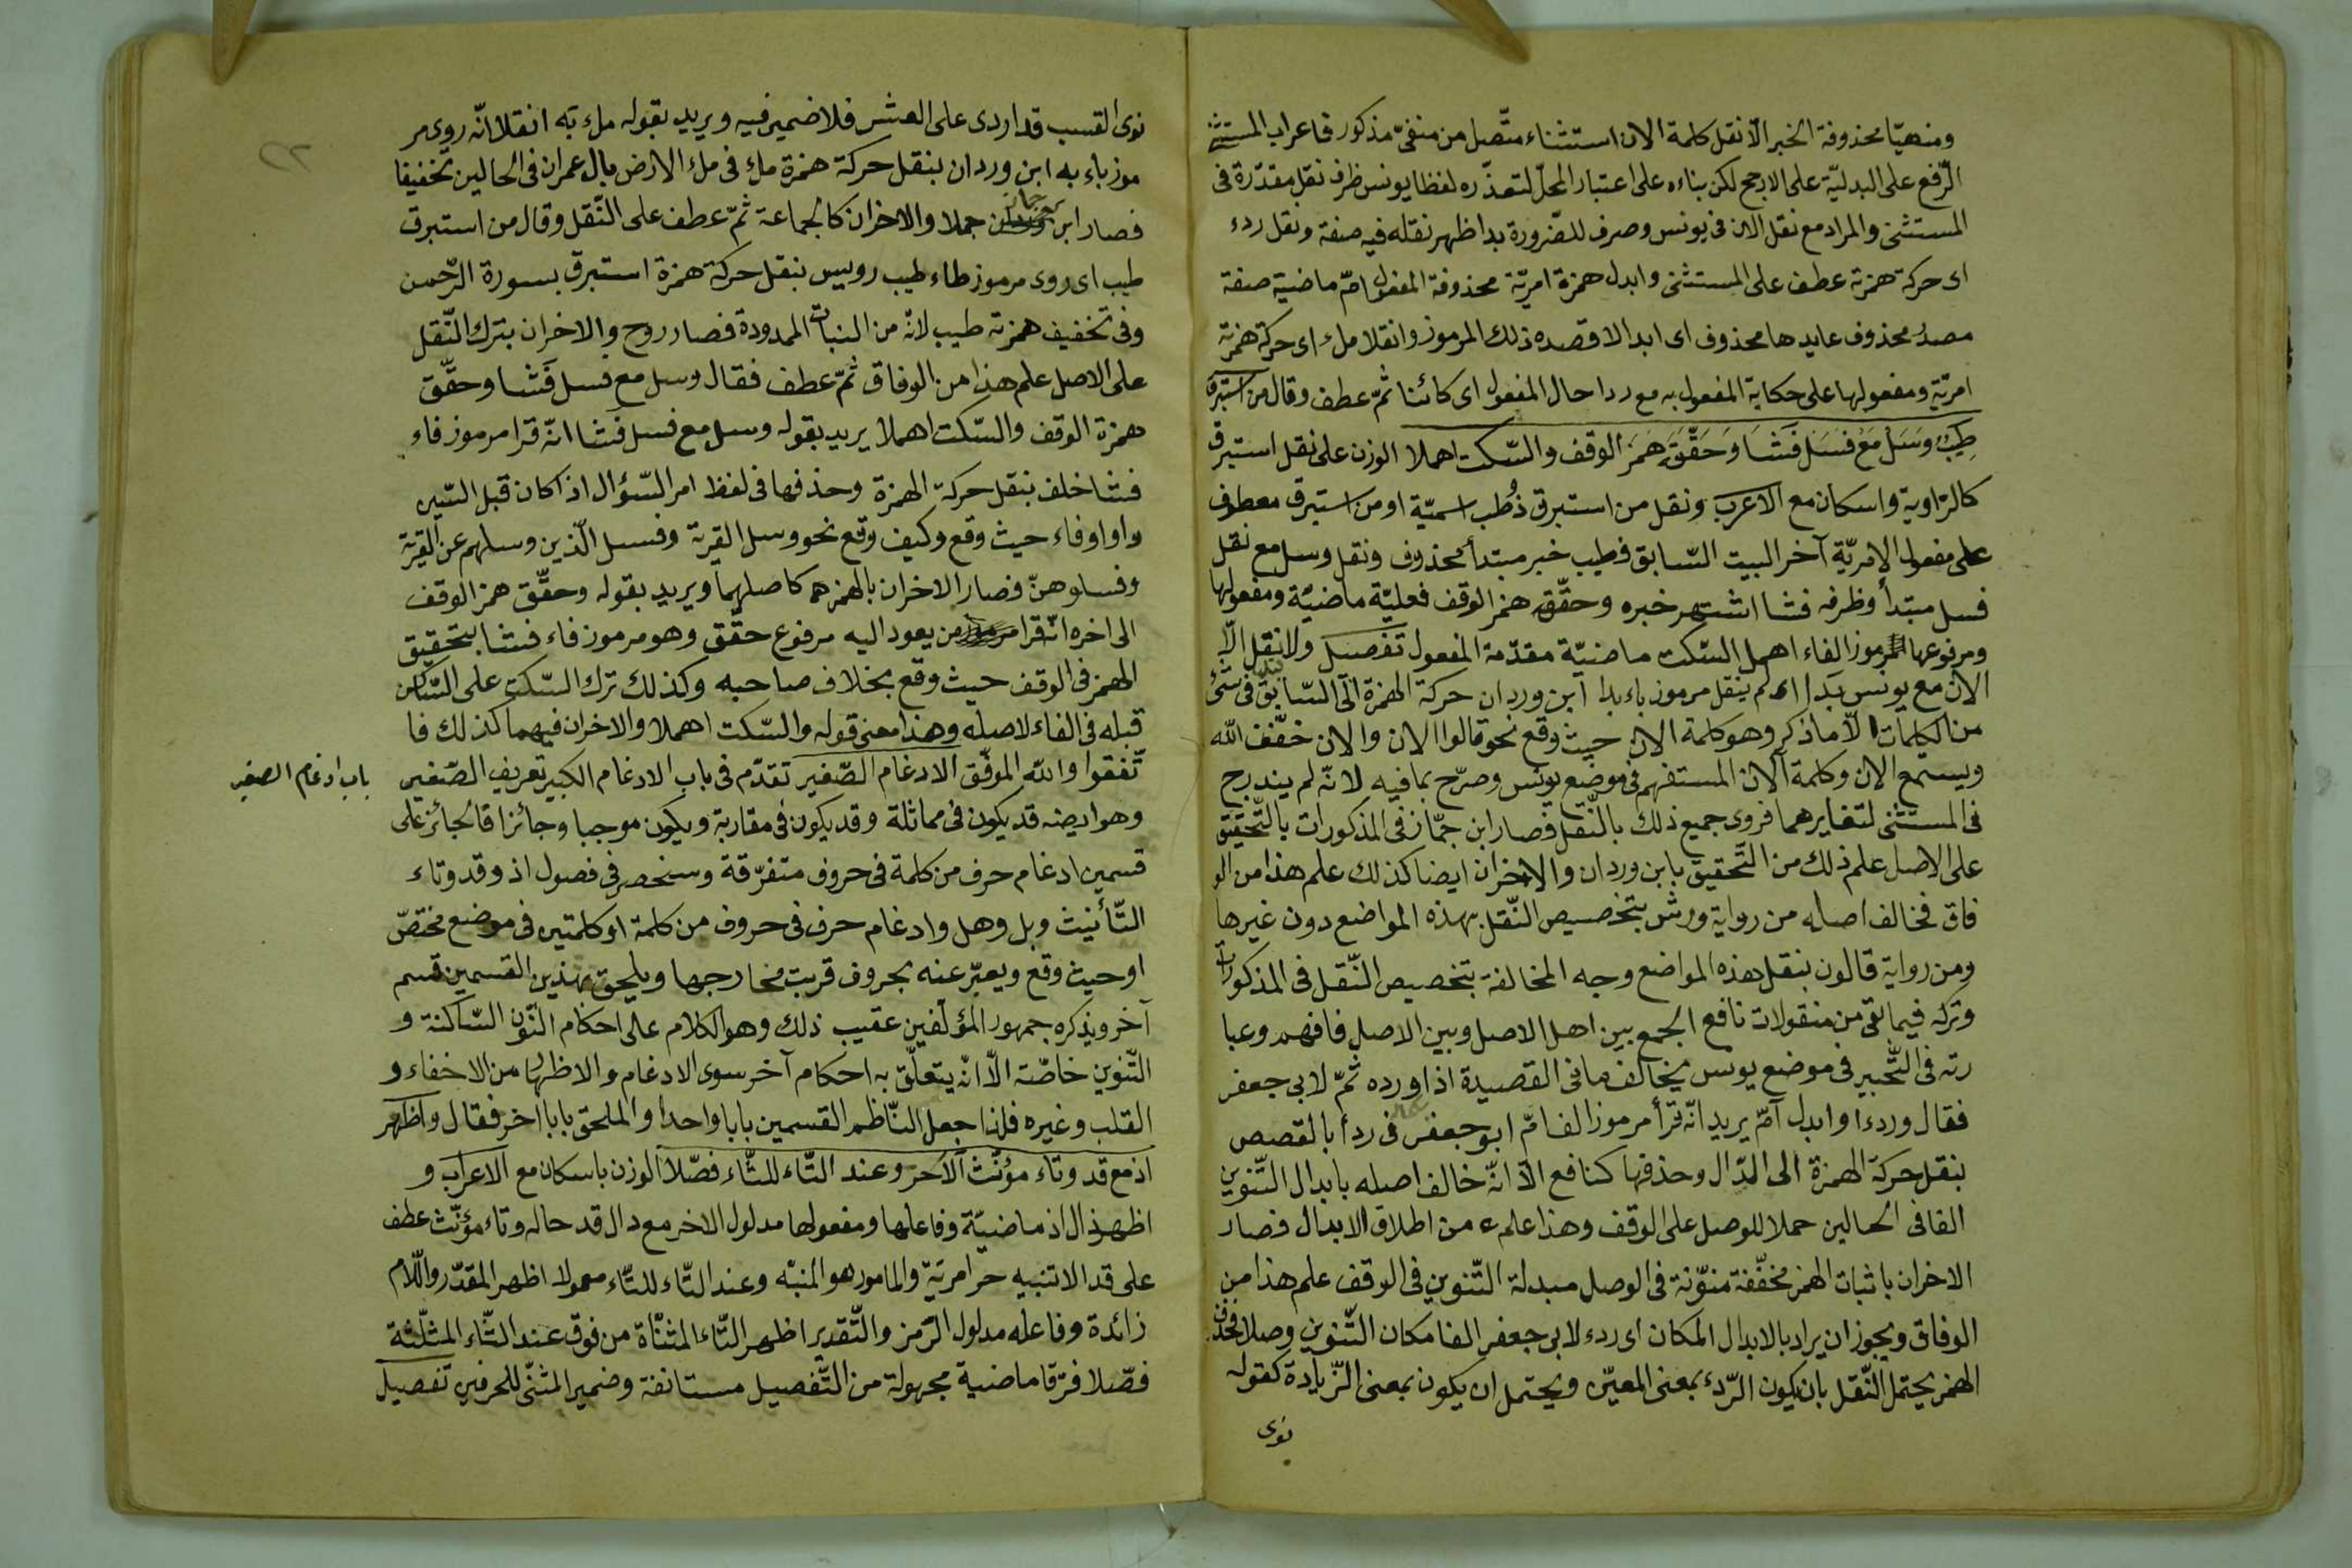 ومنهيّا محذوفة الخبر الّا نقل كلمة الان استثناء متّصل من منفىّ مذكور فاعراب المستثنى
الرّفع على البدليّة على الارجح لكن بناءه على اعتبار المحلّ لتعذّره لفظا يونس ظرف نقل مقدّرة فى
المستثنى والمراد مع نقل الان فى يونس وصرف للضّرورة بدا ظهر نقله فيه صفة ونقل ردء
اى حركة همزته عطف على المستثنى وابدل همزة امريّة محذوفة المفعول امّ ماضية صفة
مصدر محذوف عايدها محذوف اى ابدالا قصده ذلك المرموز وانقلا ملء اى حركة همزته
امريّة ومفعولها على حكاية المفعول به مع ردا حال المفعول اى كائنا ثمّ عطف وقال من استبرق
طِيبٌ وَسَل مَعْ فَسَل فَشَا وَحَقَّقَ هَمزَ الوقف والسّكت اهملا الوزن على نقل استبرق
كالرّاوية واسكان مع الاعرب ونقل من استبرق ذُطب اسميّة او من استبرق معطوف
على مفعول الامريّة آخر البيت السّابق فطيب خبر مبتدأ محذوف ونقل وسل مع نقل
فسل مبتدأ وظرفه فشا اشتهر خبره وحقّق همز الوقف فعليّة ماضيّة ومفعولها
ومرفوعها مرموز الفاء اهمل السّكت ماضيّة مقدّمة المفعول تفصيل ولا نقل الّا
الان مع يونس بدا اى لم ينقل مرموز باء بدا ابن وردان حركة الهمزة الى السّابق فى شئ
من الكلمات الّا ما ذكر وهو كلمة الان حيث وقع نحو قالوا الان والان خفّف الله
ويستمع الان وكلمة آلان المستفهم فى موضع يونس وصرّح بما فيه لانّه لم يندرج
فى المستثنى لتغايرهما فروى جميع ذلك بالنّقل فصار ابن جمّاز فى المذكورات بالتّحقيق
على الاصل علم ذلك من التّحقيق بابن وردان والاخران ايضا كذلك علم هذا من الو
فاق فخالف اصله من رواية ورش بتخصيص النّقل بهذه المواضع دون غيرها
ومن رواية قالون بنقل هذه المواضع وجه المخالفة بتخصيص النّقل فى المذكورات
وتركه فيما بقى من منقولات نافع الجمع بين اهل الاصل وبين الاصل فافهم وعبا
رته فى التّحبير فى موضع يونس يخالف ما فى القصيدة اذ اورده ثمّ لابى جعفر
فقال وردءا وابدل امّ يريد انّه قرأ مرموز الف امّ ابو جعفر فى ردأ بالقصص
بنقل حركة الهمزة الى الدّال وحذفها كنافع الّا انّه خالف اصله بابدال التّنوين
الفا فى الحالين حملا للوصل على الوقف وهذا علم من اطلاق الابدال فصار
الاخران باثبات الهمز مخفّفة منوّنة فى الوصل مبدلة التّنوين فى الوقف علم هذا من
الوفاق ويجوز ان يراد بالابدال المكان اى ردء لابى جعفر الفا مكان التّنوين وصلا فحذف
الهمز يحتمل النّقل بان يكون الرّدء بمعنى المعين ويحتمل ان يكون بمعنى الزّيادة كقوله
نوى
نوى القسب قد اردى على العشر فلا ضمير فيه ويريد بقوله ملء به انقلا انّه روى مر
موز باء به ابن وردان بنقل حركة همزة ملء فى ملء الارض بال عمران فى الحالين تخفيفا
فصار ابن جماز حملا والاخران كالجماعة ثمّ عطف على النّقل وقال من استبرق
طيب اى روى مرموز طاء طيب رويس بنقل حركة همزة استبرق بسورة الرّحمن
وفى تخفيف همزته طيب لانّه من النبات الممدودة فصار روح والاخران بترك النّقل
على الاصل علم هذا من الوفاق ثمّ عطف فقال وسل مع فسل فشا وحقّق
همزة الوقف والسّكت اهملا يريد بقوله وسل مع فسل فشا انّه قرا مرموز فاء
فشا خلف بنقل حركة الهمزة وحذفها فى لفظ امر السّؤال اذا كان قبل السّين
واو او فاء حيث وقع وكيف وقع نحو وسل القرية وفسل الّذين وسلهم عن القرية
وفسلوهنّ فصار الاخران بالهمز هما كاصلهما ويريد بقوله وحقّق همز الوقف
الى اخره انّه قرا من يعود اليه مرفوع حقّق وهو مرموز فاء فشا بتحقيق
الهمز فى الوقف حيث وقع بخلاف صاحبه وكذلك ترك السّكت على السّاكن
قبله فى الفاء لاصله وهذا معنى قوله والسّكت اهملا والاخران فيهما كذلك فا
تّفقوا والله الموفّق الادغام الصّغير تقدّم فى باب الادغام الكبير تعريف الصّغير
باب ادغام الصغير
وهو ايضا قد يكون فى مماثلة وقد يكون فى مقاربة ويكون موجبا وجائزا فالجائز على
قسمين ادغام حرف من كلمة فى حروف متفرّقة وسنحصر فى فصول اذ وقد وتاء
التّأنيث وبل وهل وادغام حرف فى حروف من كلمة او كلمتين فى موضع مختصّ
او حيث وقع ويعبّر عنه بحروف قربت مخارجها ويلحق بهذين القسمين قسم
آخر ويذكره جمهور المؤلّفين عقيب ذلك وهو الكلام على احكام النّون السّاكنة و
التّنوين خاصّة الّا انّه يتعلّق به احكام آخر سوى الادغام والاظهار من الاخفاء و
القلب وغيره فلذا جعل النّاظم القسمين بابا واحدا والملحق بابا اخر فقال واظهر
اذ مع قد وتاء مؤنّث الاحر وعند الثّاء للتّاء فصّلا الوزن باسكان مع الاعرب و
اظهر ذال اذ ماضيّة وفاعلها ومفعولها مدلول الاخر مع دال قد حاله وتاء مؤنّث عطف
على قد الا تنبيه حر امريّة والمامور هو المنبّه وعند الثّاء للتّاء معمولا اظهر المقدّر واللّام
زائدة وفاعله مدلول الرّمز والتّقدير اظهر التّاء المثنّاة من فوق عند الثّاء المثلّثة
فصّلا فرّقا ماضية مجهولة من التّفصيل مستانفة وضمير المثنّى للحرفين تفصيل